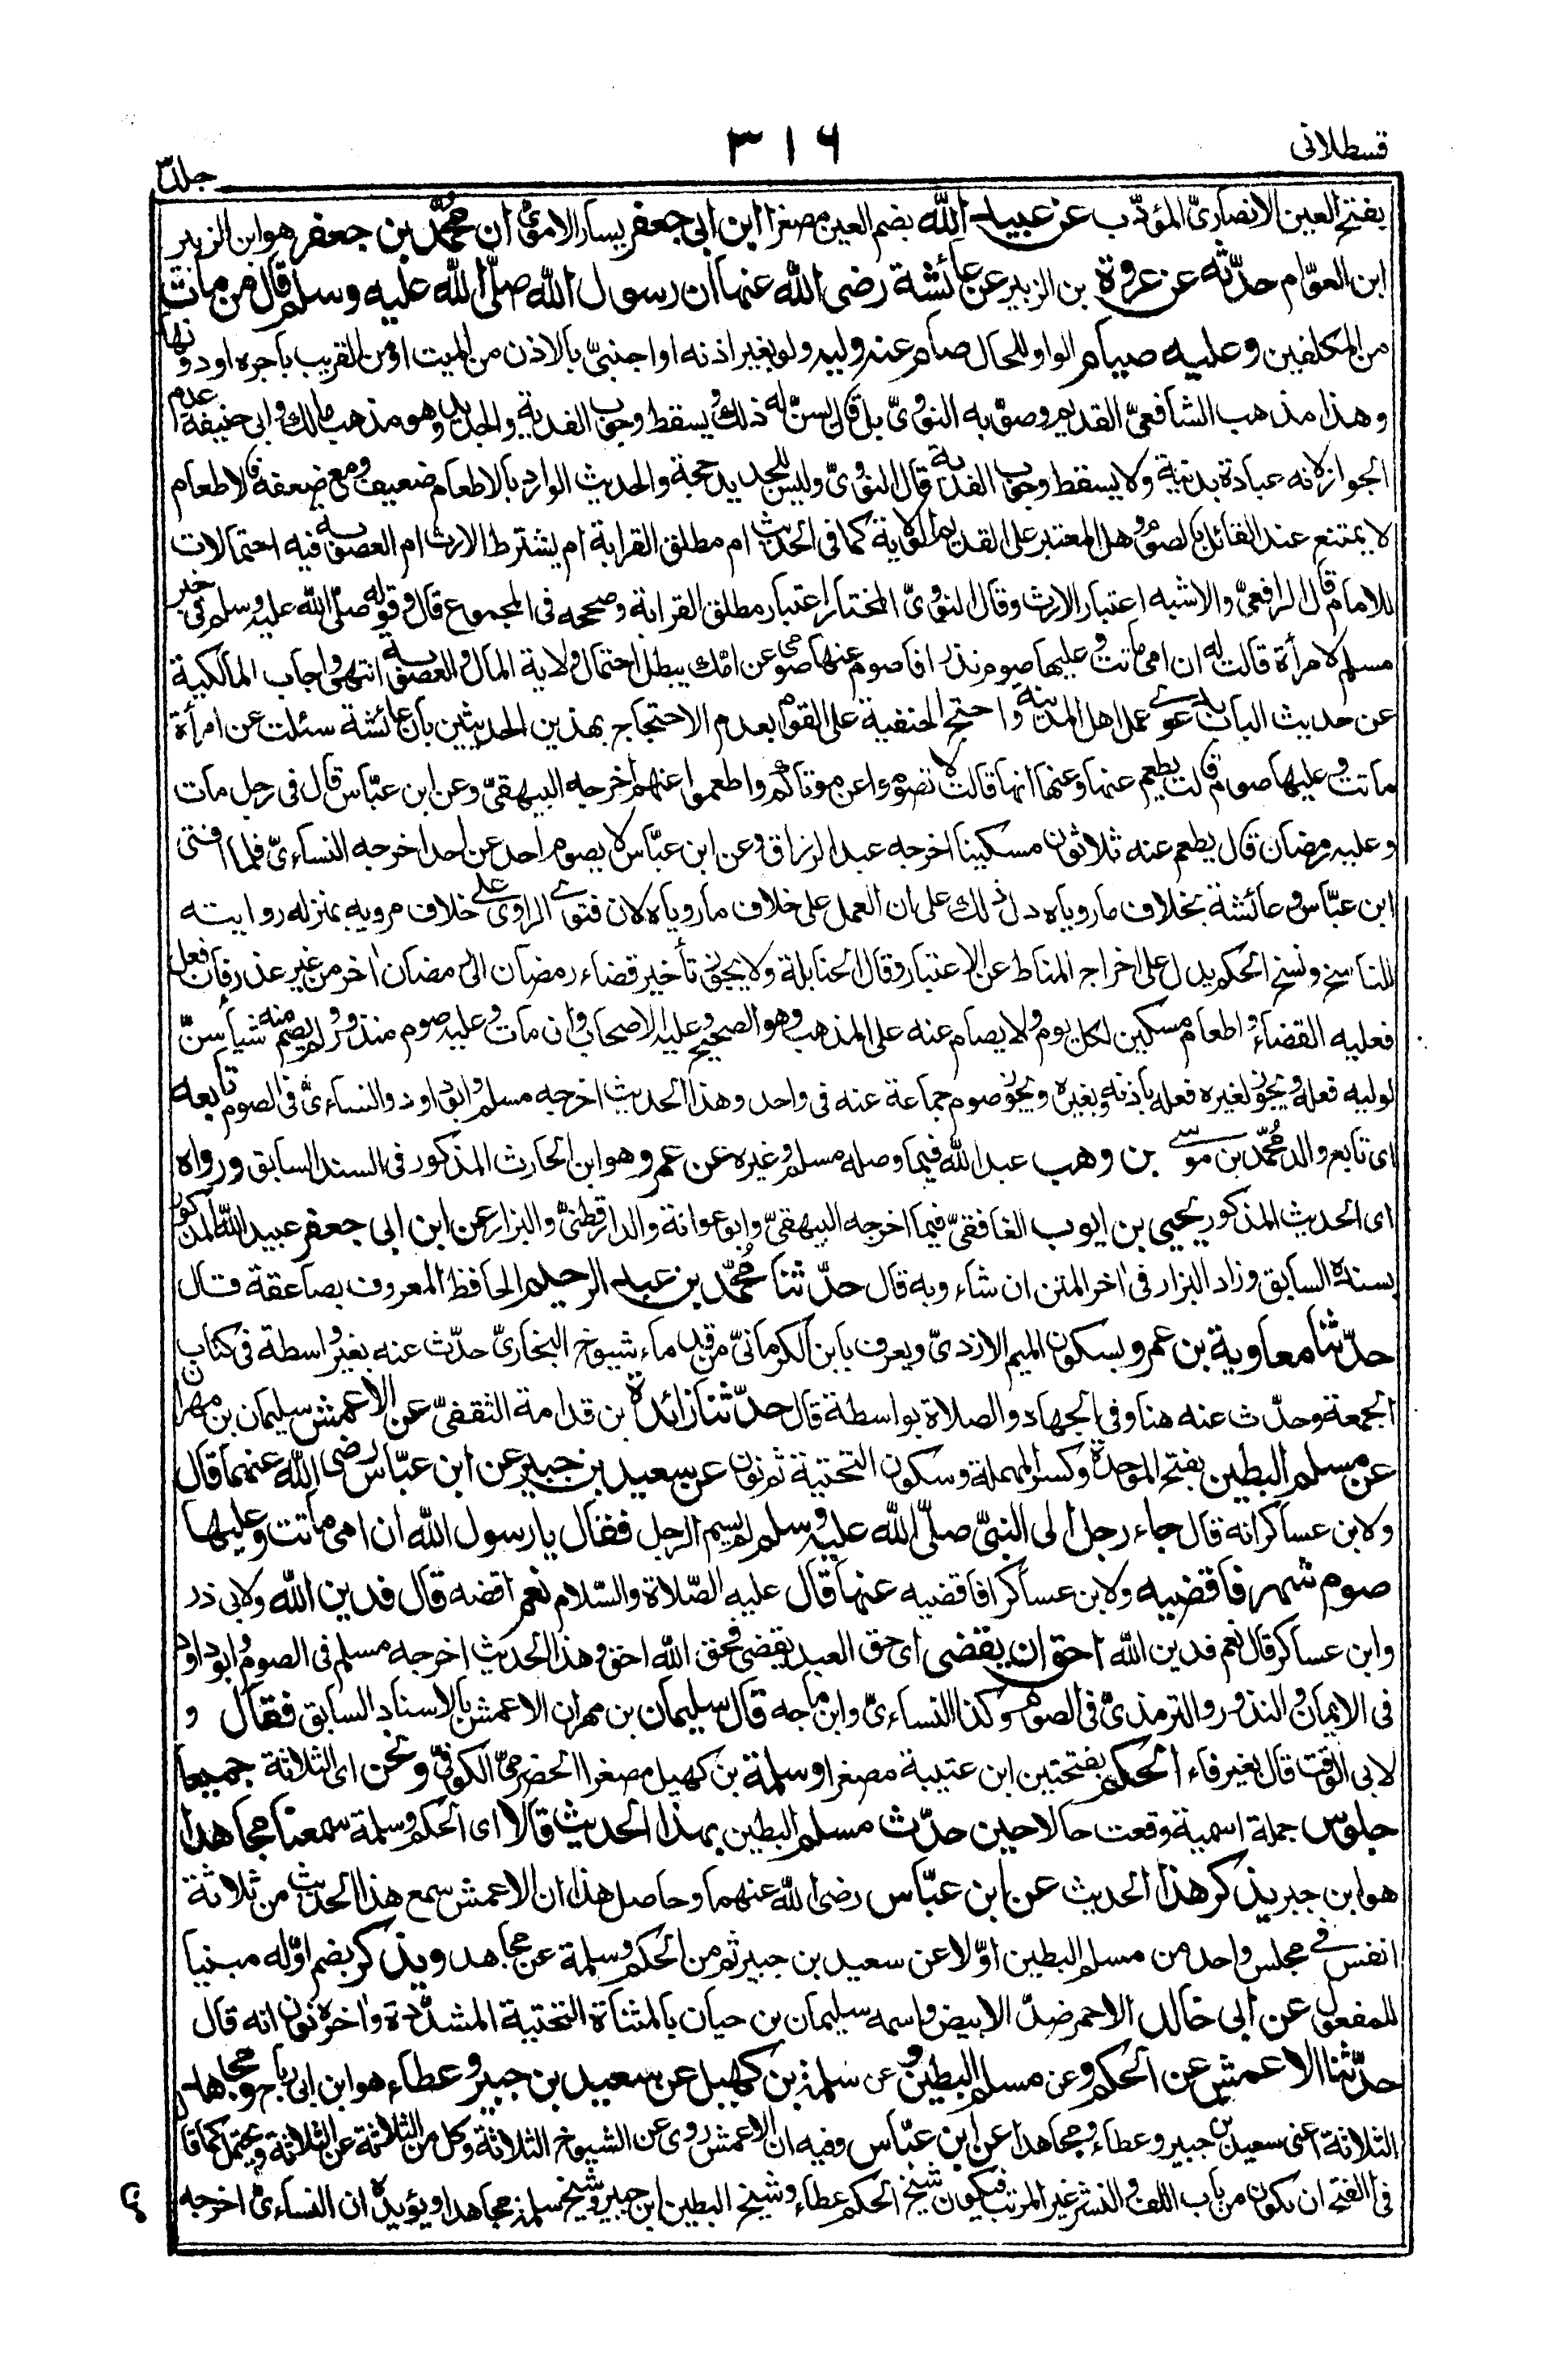 قسطلانی
٣١٦
جلد٣
بفتح العين الانصاریّ المؤدّب عن عبيد الله بضم العين مصغرا ابن ابی جعفر يسار الاموی ان محمّد بن جعفر هو ابن الزبير
ابن العوّام حدّثه عن عروة بن الزبير عن عائشة رضی الله عنها ان رسول الله صلّی الله عليه وسلم قال من مات
من المكلفين وعليه صيام الواو للحال صام عنه وليه ولو بغير اذنه او اجنبیّ بالاذن من الميت او من القريب باجره او دونها
وهذا مذهب الشافعیّ القديم وصوّبه النوویّ بل قال يسنّ له ذلك ويسقط وجوب الفدية والجديد وهو مذهب مالك وابی حنيفة عدم
الجواز لانه عبادة بدنية ولا يسقط وجوب الفدية قال النووی وليس للجديد حجة والحديث الوارد بالاطعام ضعيف ومع ضعفه فالاطعام
لا يمتنع عند القائل بالصوم وهل المعتبر علی القديم الولاية كما فی الحديث ام مطلق القرابة ام يشترط الارث ام العصوبة فيه احتمالات
للامام قال الرافعیّ والاشبه اعتبار الارث وقال النوویّ المختار اعتبار مطلق القرابة وصححه فی المجموع قال وقوله صلّی الله عليه وسلم فی خبر
مسلم لامرأة قالت له ان امی ماتت وعليها صوم نذر افاصوم عنها صومی عن امّك يبطل احتمال ولاية المال والعصوبة انتهی واجاب المالكية
عن حديث الباب بدعوی عمل اهل المدينة واحتج الحنفية علی القول بعدم الاحتجاج بهذين الحديثين بان عائشة سئلت عن امرأة
ماتت وعليها صوم قالت يطعم عنها وعنها انها قالت لا تصوموا عن موتاكم واطعموا عنهم اخرجه البيهقیّ وعن ابن عبّاس قال فی رجل مات
وعليه رمضان قال يطعم عنه ثلاثون مسكينا اخرجه عبد الرزاق وعن ابن عبّاس لا يصوم احد عن احد اخرجه النساءیّ فلما افتی
ابن عبّاس وعائشة بخلاف ما روياه دل ذلك علی ان العمل علی خلاف ما روياه لان فتوی الراوی علی خلاف مرويه بمنزله روايته
للناسخ ونسخ الحكم يدل علی اخراج المناط عن الاعتبار وقال الحنابلة ولا يجوز تأخير قضاء رمضان الی رمضان اخر من غير عذر فان فعل
فعليه القضاء واطعام مسكين لكل يوم ولا يصام عنه علی المذهب وهو الصحيح وعليه الاصحاب وان مات وعليه صوم منذور ولم يصم منه شيأ سنّ
لوليه فعله ويجوز لغيره فعله باذنه وبغيره ويجوز صوم جماعة عنه فی واحد وهذا الحديث اخرجه مسلم وابو داود والنساءیّ فی الصوم تابعه
ای تابع والد محمّد بن موسی بن وهب عبد الله فيما وصله مسلم وغيره عن عمرو وهو ابن الحارث المذكور فی السند السابق ورواه
ای الحديث المذكور يحيی بن ايوب الغافقیّ فيما اخرجه البيهقیّ وابو عوانة والدارقطنیّ والبزار عن ابن ابی جعفر عبيد الله المذكور
بسنده السابق وزاد البزار فی اخر المتن ان شاء وبه قال حدّثنا محمّد بن عبد الرحيم الحافظ المعروف بصاعقة قال
حدّثنا معاوية بن عمرو بسكون الميم الازدیّ ويعرف بابن الكرمانیّ من قدماء شيوخ البخاریّ حدّث عنه بغير واسطة فی كتاب
الجمعة وحدّث عنه هنا وفی الجهاد والصلاة بواسطة قال حدّثنا زائدة بن قدامة الثقفیّ عن الاعمش سليمان بن مهران
عن مسلم البطين بفتح الموحدة وكسر المهملة وسكون التحتية ثم نون عن سعيد بن جبير عن ابن عبّاس رضی الله عنهما قال
ولابن عساكر انه قال جاء رجل الی النبیّ صلّی الله عليه وسلم لم يسم الرجل فقال يا رسول الله ان امی ماتت وعليها
صوم شهر فاقضيه ولابن عساكر افاقضيه عنها قال عليه الصّلاة والسّلام نعم اقضه قال فدين الله ولابی ذر
وابن عساكر قال نعم فدين الله احق ان يقضی ای حق العبد يقضی فحق الله احق وهذا الحديث اخرجه مسلم فی الصوم وابو داود
فی الايمان والنذور والترمذیّ فی الصوم وكذا النساءیّ وابن ماجه قال سليمان بن مهران الاعمش بالاسناد السابق فقال و
لابی الوقت قال بغير فاء الحكم بفتحتين ابن عتيبة مصغرا وسلمة بن كهيل مصغرا الحضرمیّ الكوفیّ ونحن ای الثلاثة جميعا
جلوس جملة اسمية وقعت حالا حين حدّث مسلم البطين بهذا الحديث قالا ای الحكم وسلمة سمعنا مجاهدا
هو ابن جبر يذكر هذا الحديث عن ابن عبّاس رضی الله عنهما وحاصل هذا ان الاعمش سمع هذا الحديث من ثلاثة
انفس فی مجلس واحد من مسلم البطين اوّلا عن سعيد بن جبير ثم من الحكم وسلمة عن مجاهد ويذكر بضم اوّله مبنيا
للمفعول عن ابی خالد الاحمر ضدّ الابيض واسمه سليمان بن حيان بالمثناة التحتية المشدّدة واخره نون انه قال
حدّثنا الاعمش عن الحكم وعن مسلم البطين وعن سلمة بن كهيل عن سعيد بن جبير وعطاء هو ابن ابی رباح ومجاهد
الثلاثة اعنی سعيد بن جبير وعطاء ومجاهدا عن ابن عبّاس وفيه ان الاعمش روی عن الشيوخ الثلاثة وكل من الثلاثة عن الثلاثة ويحتمل كما قال
فی الفتح ان يكون من باب اللف والنشر غير المرتب فيكون شيخ الحكم عطاء وشيخ البطين ابن جبير وشيخ سلمة مجاهدا ويؤيده ان النساءیّ اخرجه